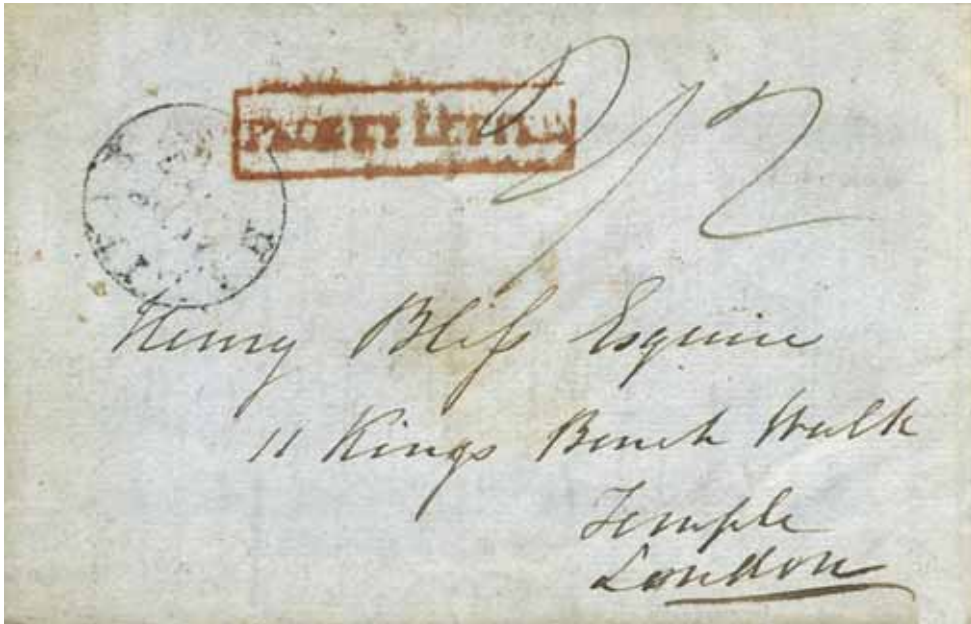 PACKET LETTER
2/2
Henry Bliſs Esquire
11 Kings Bench Walk
Temple
London